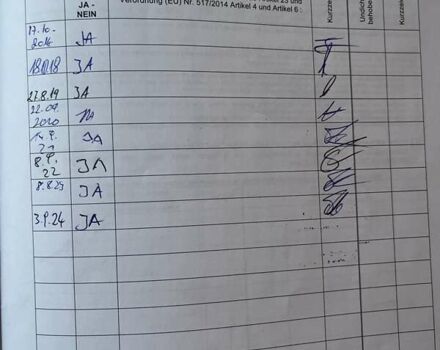 JA -
NEIN
Verordnung (EU) Nr. 517/2014 Artikel 4 und Artikel 6 :
Kurzze
Undich
behobe
Kurzze
17.10.
2016 JA
18.09.18 JA
27.8.19 JA
22.09.
2020 JA
14.9.
21 JA
8.9.
22 JA
8.8.23 JA
3.9.24 JA